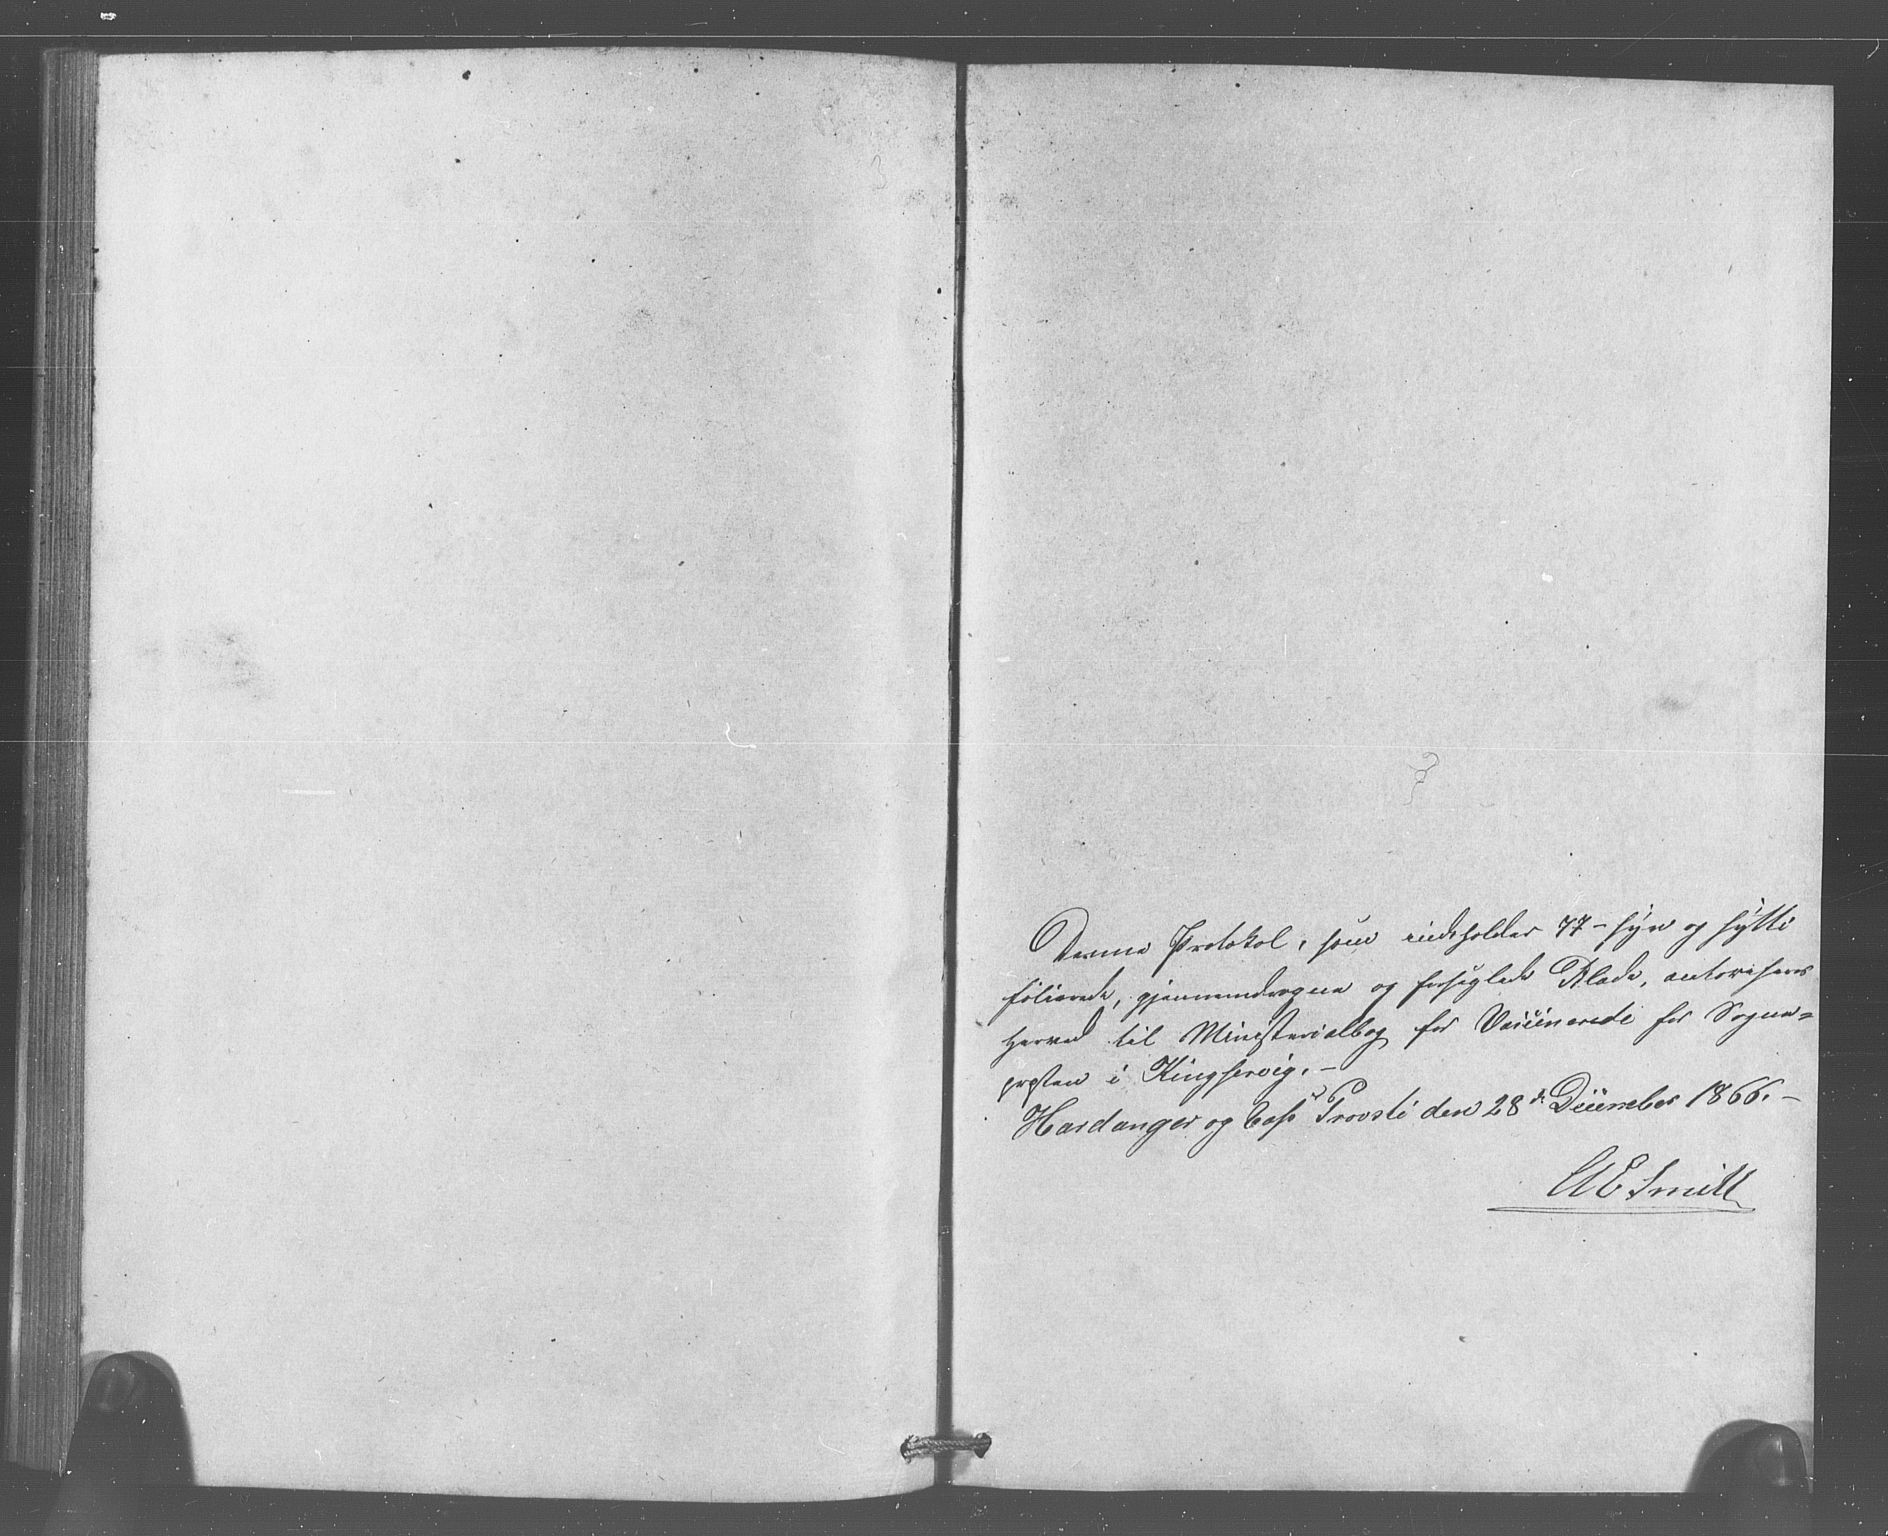 Denne Protokol, som indeholder 77 – syv og sytti
folierede, gjennemdragne og forseglede Blade, autoriseres
herved til Ministerialbog for Vaccinerede for Sogne=
præsten i Kingservig. –
Hardanger og Voss Provsti den 28d December 1866. –
AE Smitt